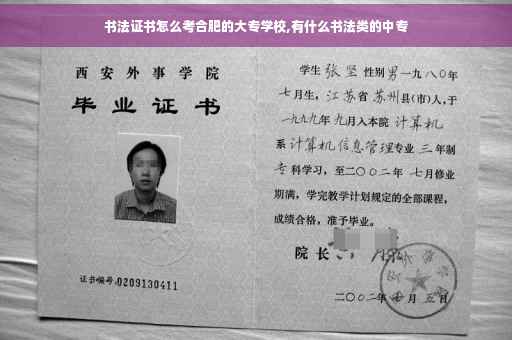 书法证书怎么考合肥的大专学校,有什么书法类的中专
西安外事学院
毕业证书
证书编号:0209130411
学生张坚性别男一九八〇年
七月生,江苏省苏州县(市)人,于
一九九九年九月入本院计算机
系计算机信息管理专业三年制
专科学习,至二〇〇二年七月修业
期满,学完教学计划规定的全部课程,
成绩合格,准予毕业。
院长
二〇〇二年 月五日